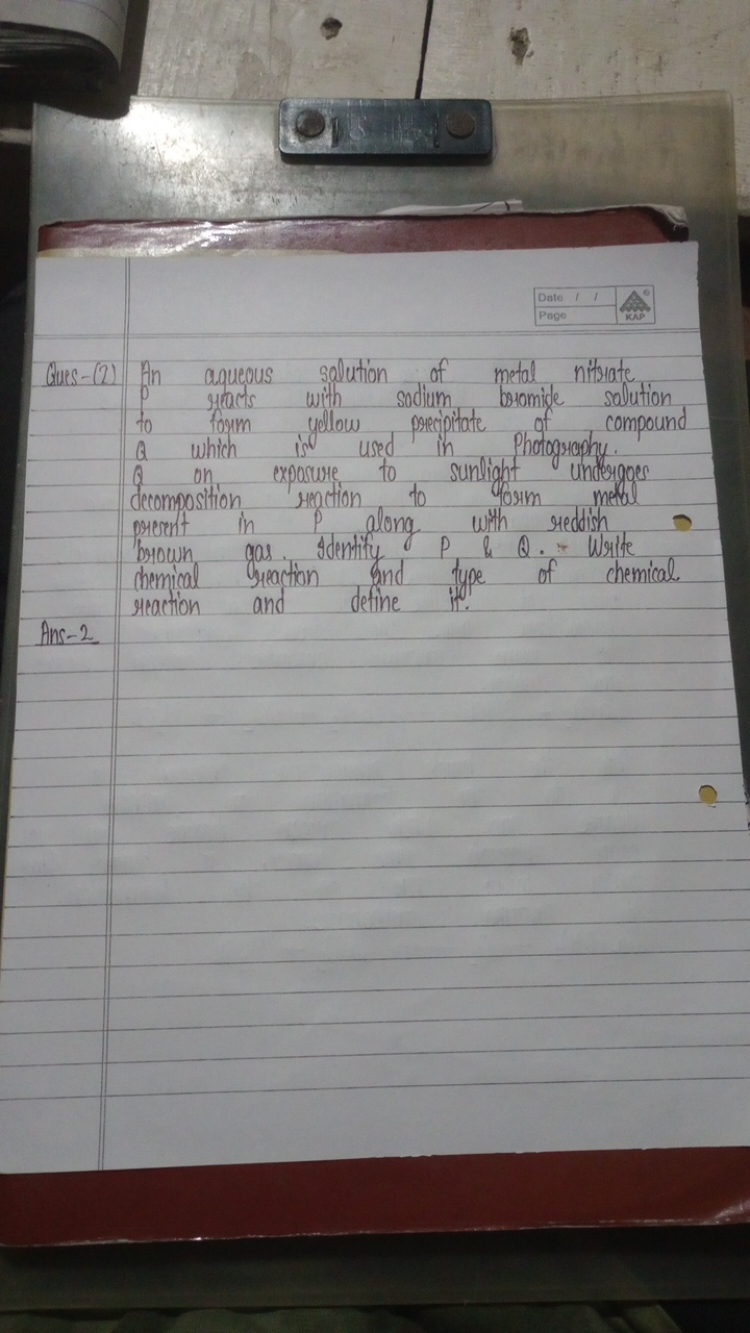 Date / /
Page
KAP
Ques-(2) An aqueous solution of metal nitrate
P reacts with sodium bromide solution
to form yellow precipitate of compound
Q which is used in Photography.
Q on exposure to sunlight undergoes
decomposition reaction to form metal
present in P along with reddish
brown gas. Identify P & Q. Write
chemical reaction and type of chemical
reaction and define it.
Ans-2